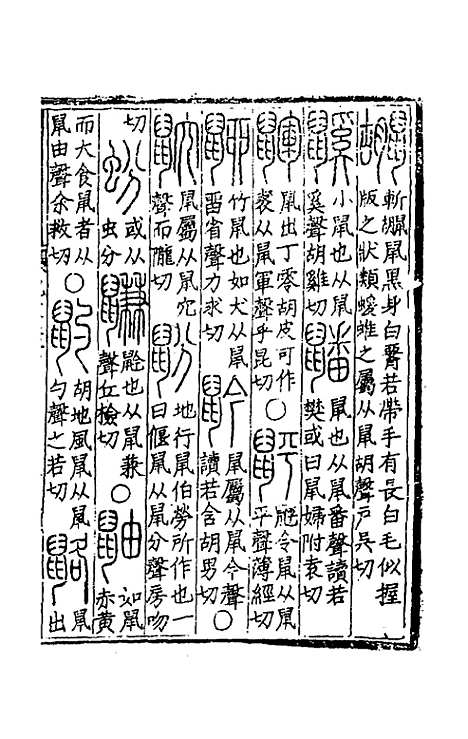 𪕱斬𪕭鼠黑身白若帶手有長白毛似握
版之狀類蝯蜼之屬从鼠胡聲戸吳切
鼷小鼠也从鼠
奚聲胡雞切
𪖇鼠也从鼠番聲讀若
樊或曰鼠婦附袁切
鼲鼠出丁零胡皮可作
裘从鼠軍聲乎昆切○
䶄令鼠从鼠
平聲薄經切
䶉竹鼠也如犬从鼠
畱省聲力求切
䶃鼠屬从鼠今聲
讀若含胡男切○
𪕎鼠屬从鼠宂
聲而隴切
鼢地行鼠伯勞所作也一
曰偃鼠从鼠分聲房吻
切
蚡或从
虫分
鼸也从鼠兼
聲丘檢切○
鼬如鼠
赤黄
而大食鼠者从
鼠由聲余救切○
䶂胡地風鼠从鼠
勺聲之若切
䶅鼠
出